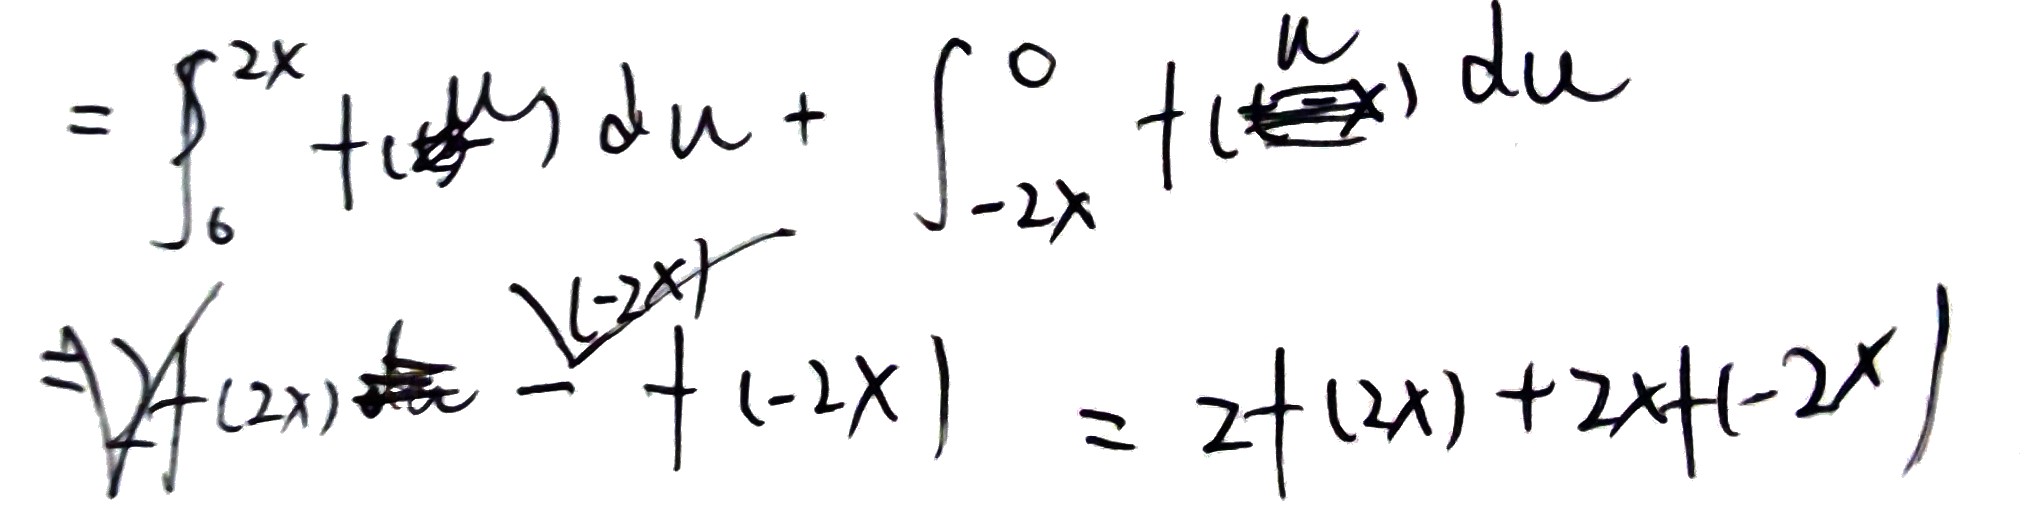 = ∫₆^{2x} f(u) du + ∫_{-2x}^{0} f(u) du
= 2f(2x) - (-2x) f(-2x) = 2f(2x) + 2xf(-2x)